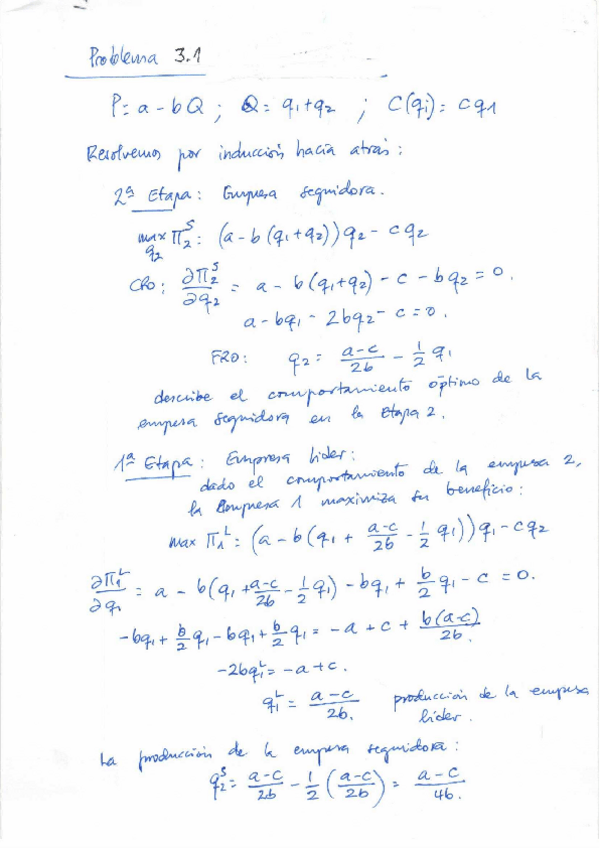 Problema 3.1
P = a - bQ ; Q = q1 + q2 ; C(qi) = cq1
Resolvemos por inducción hacia atrás:
2ª Etapa: Empresa seguidora.
max q2 Π2^S: (a - b(q1+q2))q2 - cq2
CPO: ∂Π2^S/∂q2 = a - b(q1+q2) - c - bq2 = 0.
a - bq1 - 2bq2 - c = 0.
FRO: q2 = (a-c)/2b - 1/2 q1
describe el comportamiento óptimo de la
empresa seguidora en la Etapa 2.
1ª Etapa: Empresa líder:
dado el comportamiento de la empresa 2,
la Empresa 1 maximiza su beneficio:
max Π1^L: (a - b(q1 + (a-c)/2b - 1/2 q1))q1 - cq2
∂Π1^L/∂q1 = a - b(q1 + (a-c)/2b - 1/2 q1) - bq1 + b/2 q1 - c = 0.
-bq1 + b/2 q1 - bq1 + b/2 q1 = -a + c + b(a-c)/2b.
-2bq1^L = -a + c.
q1^L = (a-c)/2b. producción de la empresa
líder.
La producción de la empresa seguidora:
q2^S = (a-c)/2b - 1/2 ((a-c)/2b) = (a-c)/4b.